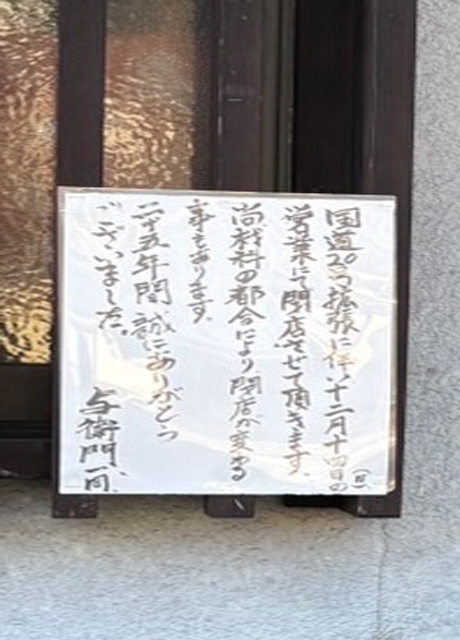 国道20号拡張に伴い十二月十四日の(日)
営業にて閉店させて頂きます。
尚材料の都合により閉店が変わる
事もあります。
二十五年間誠にありがとう
ございました。
与衛門一同。